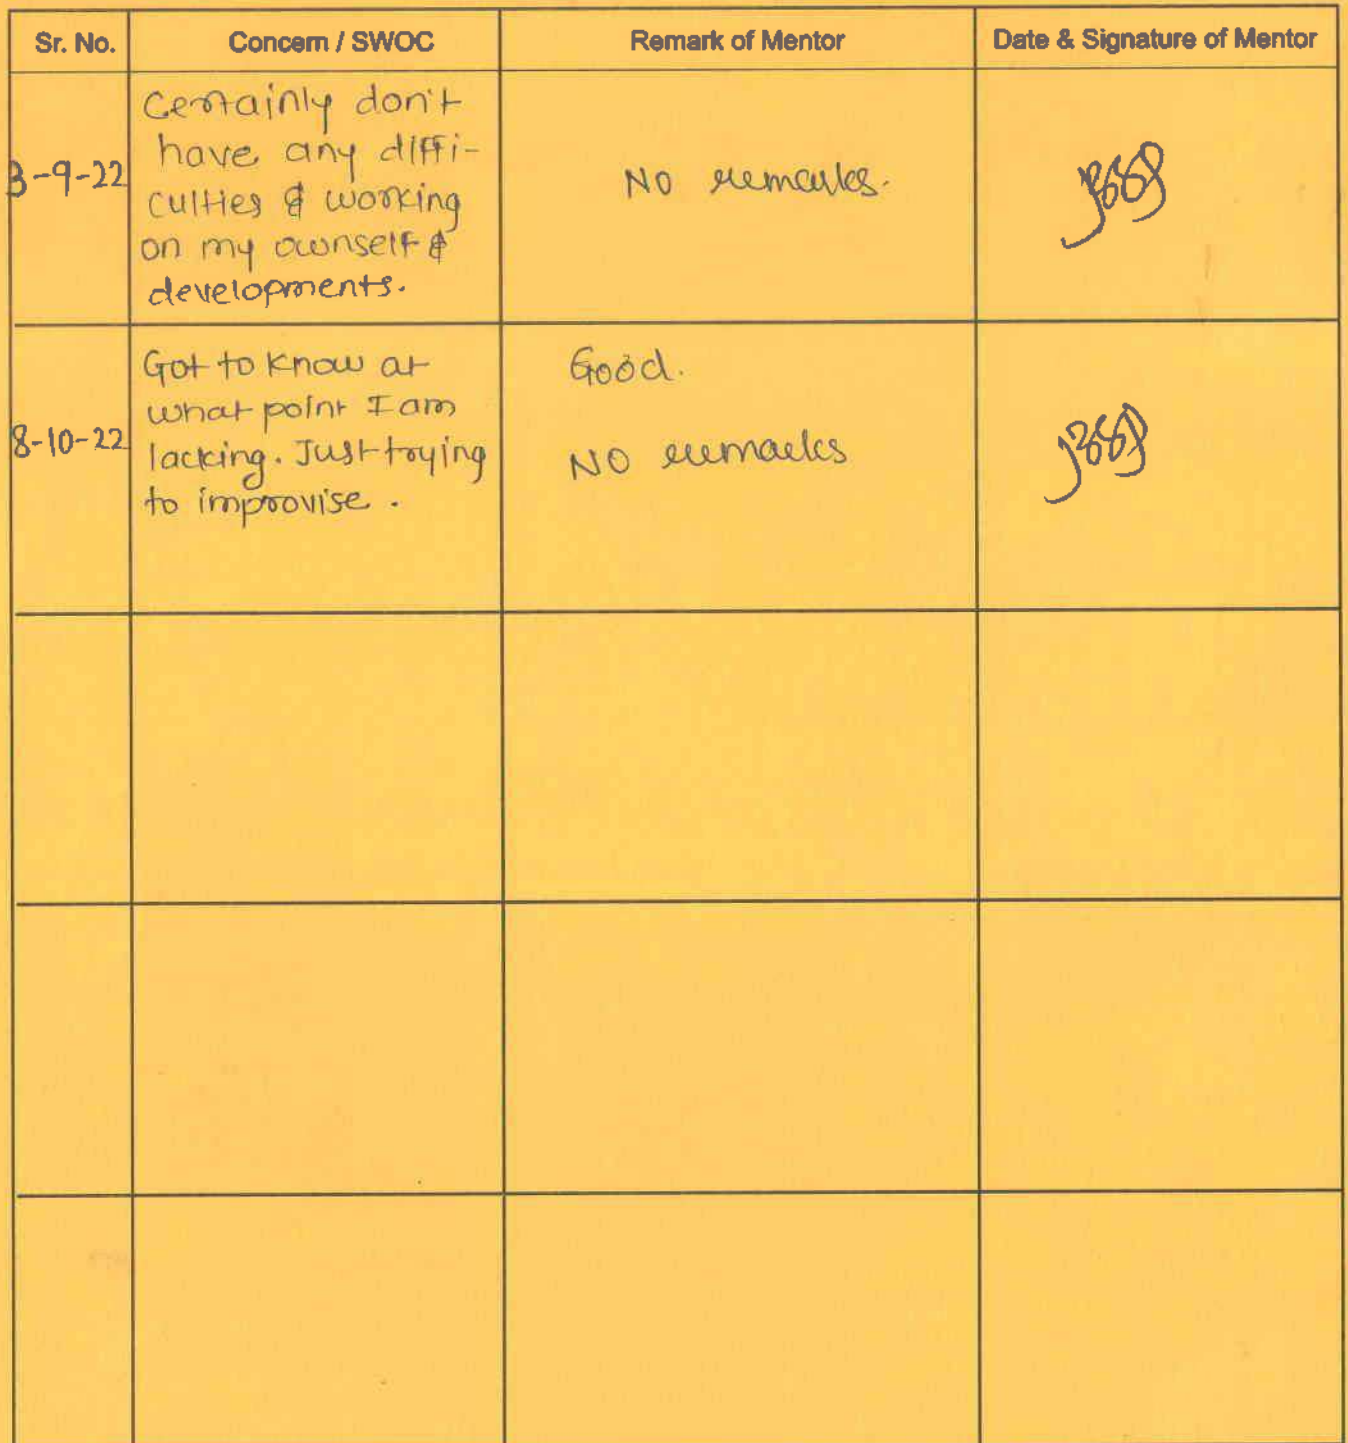 Sr. No. Concern / SWOC Remark of Mentor Date & Signature of Mentor
Certainly don't
have any diffi-
3-9-22
culties & working
on my ownself &
developments.
No remarks.
Got to know at
what point I am
8-10-22
lacking. Just trying
to improvise.
Good.
NO remarks